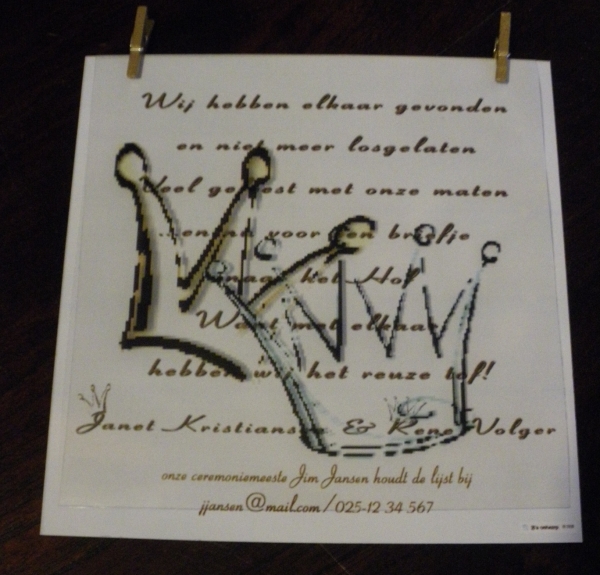 Wij hebben elkaar gevonden
en niet meer losgelaten
Veel gefeest met onze maten
voor een briefje
naar het Hof
Want met elkaar
hebben wij het reuze tof!
Janet Kristianse & Rene Volger
onze ceremoniemeeste Jim Jansen houdt de lijst bij
jjansen@mail.com / 025-12 34 567